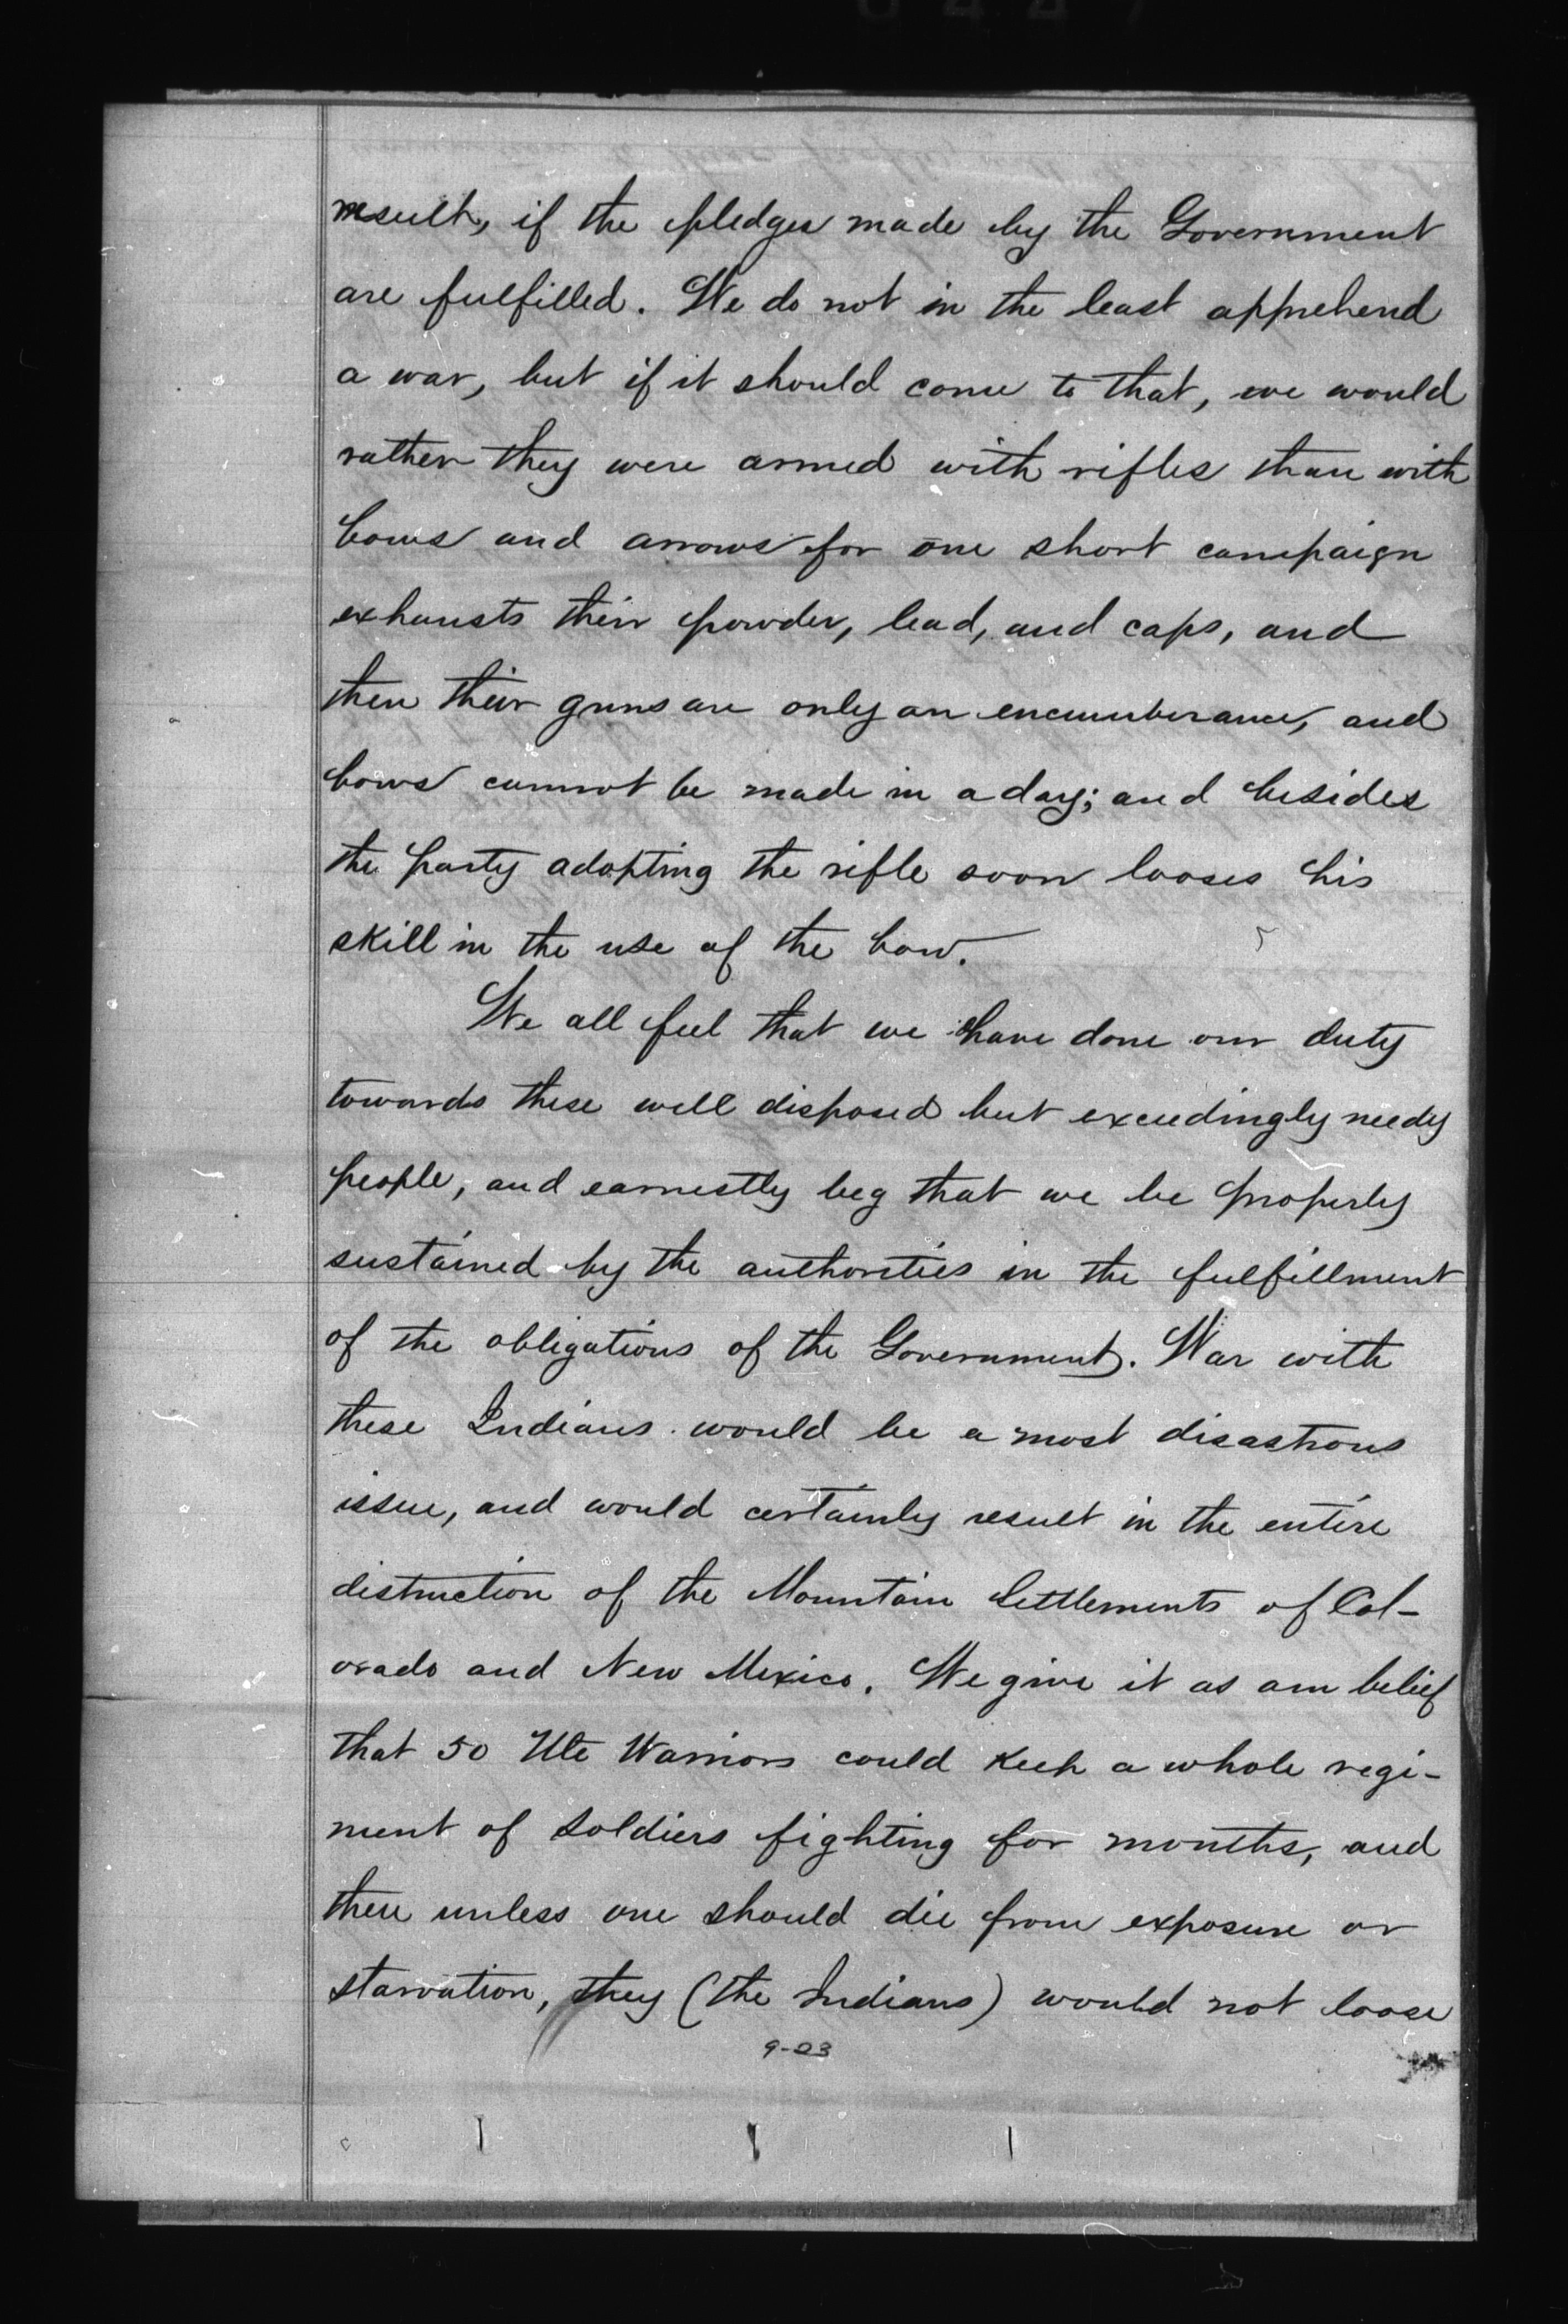 0447
result, if the pledges made by the Government
are fulfilled. We do not in the least apprehend
a war, but if it should come to that, we would
rather they were armed with rifles than with
bows and arrows for one short campaign
exhausts their powder, lead, and caps, and
then their guns are only an encumberance, and
bows cannot be made in a day; and besides
the party adopting the rifle soon looses his
skill in the use of the bow.
We all feel that we have done our duty
towards these well disposed but exceedingly needy
people, and earnestly beg that we be properly
sustained by the authorities in the fulfillment
of the obligations of the Government. War with
these Indians would be a most disastrous
issue, and would certainly result in the entire
distruction of the Mountain Settlements of Col-
orado and New Mexico. We give it as our belief
that 50 Ute Warriors could keep a whole regi-
ment of soldiers fighting for months, and
then unless one should die from exposure or
starvation, they (the Indians) would not loose
9-23